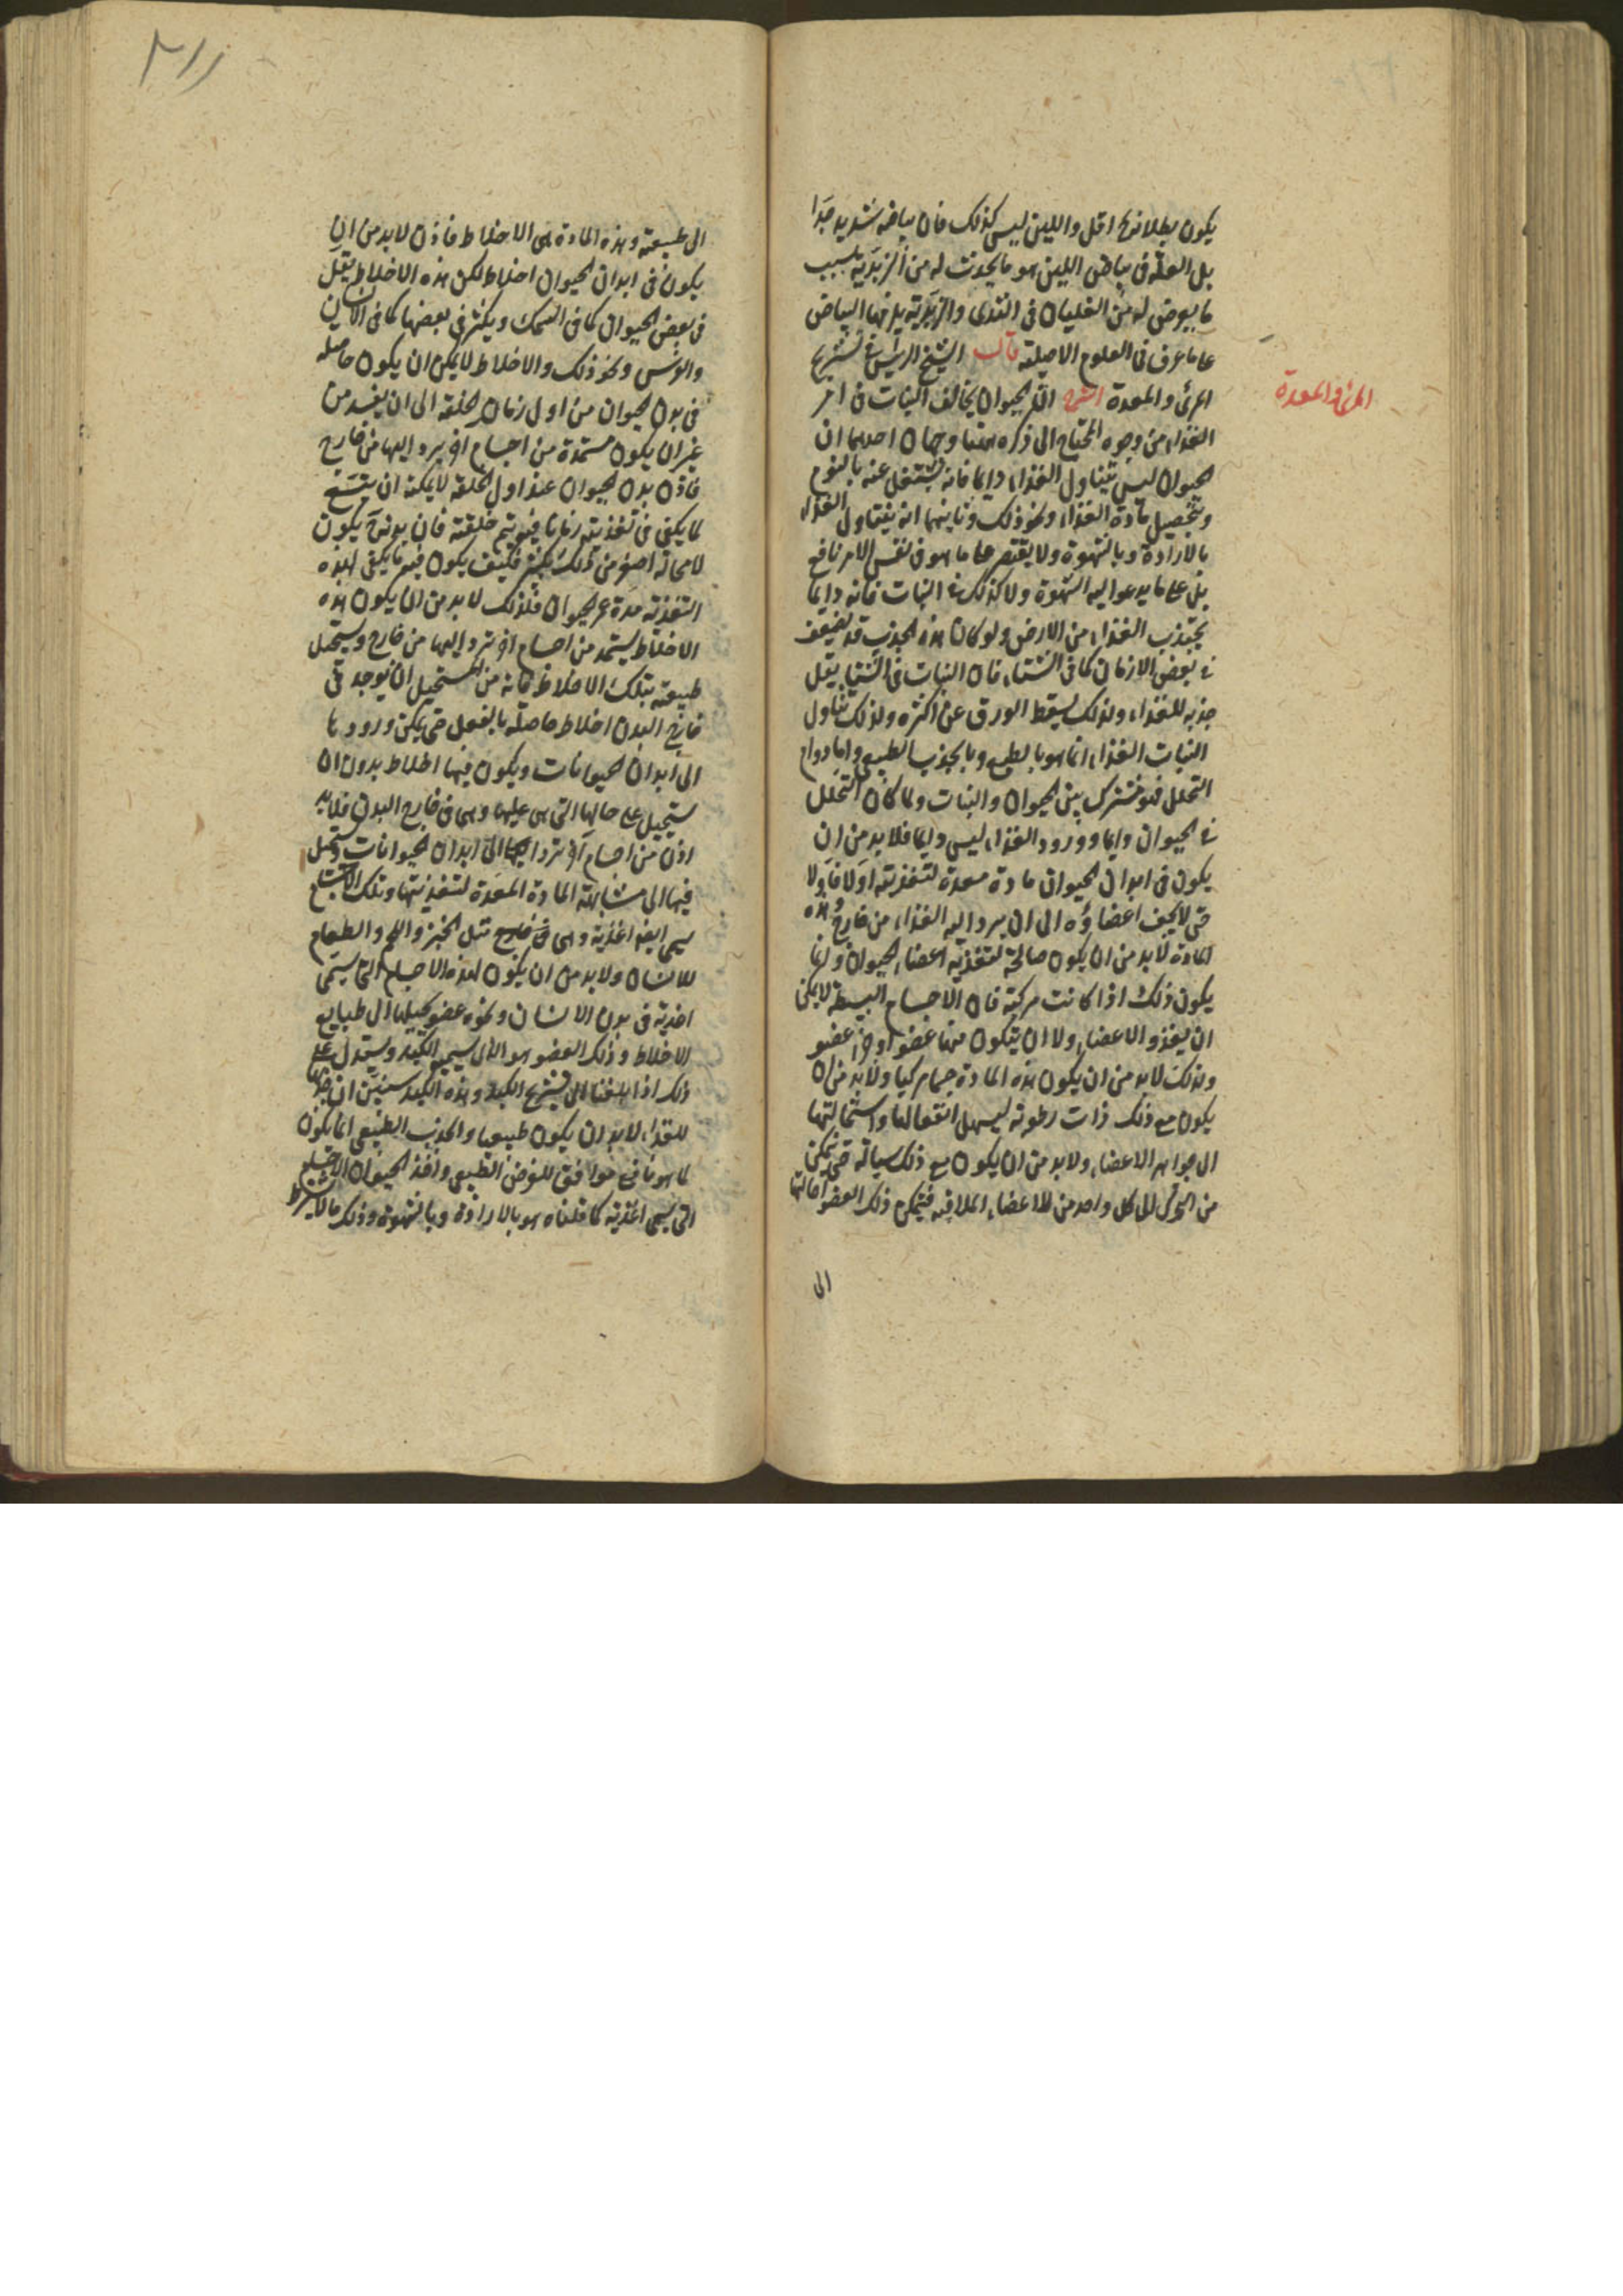 يكون بطلانها اقل واللبن ليس كذلك فان بياضه شديد جدا
بل العلة فى بياض اللبن هو ما يحدث له من الزبدية بسبب
ما يعرض له من الغليان فى الثدى والزبدية يلزمها البياض
على ما عرف فى العلوم الاصلية قال الشيخ الرئيس فى تشريح
المرئ والمعدة
المرئ والمعدة الشرح ان الحيوان يخالف النبات فى امر
الغذاء من وجوه المحتاج الى ذكره ههنا وجهان احدهما ان
الحيوان ليس يتناول الغذاء دايما فانه يشتغل عنه بالنوم
وبتحصيل مادة الغذاء ونحو ذلك وثانيهما انه يتناول الغذاء
بالارادة وبالشهوة ولا يقتصر على ما هو فى نفس الامر نافع
بل على ما يدعو اليه الشهوة ولا كذلك فى النبات فانه دايما
يجتذب الغذاء من الارض ولو كان هذه الجذب قد يضعف
فى بعض الازمان كما فى الشتاء فان النبات فى الشتاء يقل
جذبه للغذاء ولذلك يسقط الورق عن اكثره ولذلك تناول
النبات الغذاء انما هو بالطبع وبالجذب الطبيعى واما دوام
التحلل فهو مشترك بين الحيوان والنبات ولما كان التحلل
فى الحيوان دايما وورود الغذاء ليس دايما فلا بد من ان
يكون فى ابدان الحيوان مادة معدة لتغذيته اولا فاولا
حتى لا يجف اعضاؤه الى ان يرد اليه الغذاء من خارج وهذه
المادة لا بد من ان يكون صالحة لتغذية اعضاء الحيوان وانما
يكون ذلك اذا كانت مركبة فان الاجسام البسيطة لا يمكن
ان يغذو الاعضاء ولا ان يتكون منها عضو او جزء عضو
ولذلك لا بد من ان يكون هذه المادة جسما مركبا ولا بد من ان
يكون مع ذلك ذات رطوبة ليسهل انفعالها واستحالتها
الى جواهر الاعضاء ولا بد من ان يكون مع ذلك سيالة حتى يتمكن
من التحرك الى كل واحد من الاعضاء الملاقيه فيتمكن ذلك العضو احالتها
الى
٢١١
الى طبيعته وهذه المادة هى الاخلاط فاذن لا بد من ان
يكون فى ابدان الحيوان اخلاط لكن هذه الاخلاط يقل
فى بعض الحيوان كما فى السمك ويكثر فى بعضها كما فى الانسان
والفرس ونحو ذلك والاخلاط لا يمكن ان يكون حاصله
فى بدن الحيوان من اول زمان الخلقة الى ان يفسد من
غير ان يكون مستمدة من اجسام اخر يرد اليها من خارج
فاذن بدن الحيوان عند اول الخلقة لا يمكنه ان يتسع
لما يكفى فى تغذيته زمانا فيه يتم خلقته فان بدنه يكون
لا محالة اصغر من ذلك بكثير فكيف يكون فيه ما يكفى لهذه
التغذية مدة عمر الحيوان فلذلك لا بد من ان يكون هذه
الاخلاط يستمد من اجسام اخر ترد اليها من خارج ويستحيل
طبيعته بتلك الاخلاط فانه من المستحيل ان يوجد فى
خارج البدن اخلاط حاصلة بالفعل حتى يمكن ورودها
الى ابدان الحيوانات ويكون فيها اخلاط بدون ان
يستحيل على حالها التى هى عليها وهى فى خارج البدن فلا بد
اذن من اجسام اخر ترد اليها الى ابدان الحيوانات وتستحيل
فيها الى مشابهة المادة المعدة لتغذيتها وتلك الاجسام
يسمى ايضا اغذية وهى فى خارج مثل الخبز واللحم والطعام
للانسان ولا بد من ان يكون لهذه الاجسام التى يسمى
اغذية فى بدن الانسان ونحوه عضو يحيلها الى طبايع
الاخلاط وذلك العضو هو الذى يسمى الكبد ويستدل على
ذلك اذا بلغنا الى تشريح الكبد وهذه الكبد سنبين ان جذبها
للغذاء لا بد ان يكون طبيعيا والجذب الطبيعى انما يكون
لما هو نافع موافق للغرض الطبيعى واخذ الحيوان الاجسام
التى يسمى اغذية كما قلناه هو بالارادة وبالشهوة وذلك مما لا يشترط